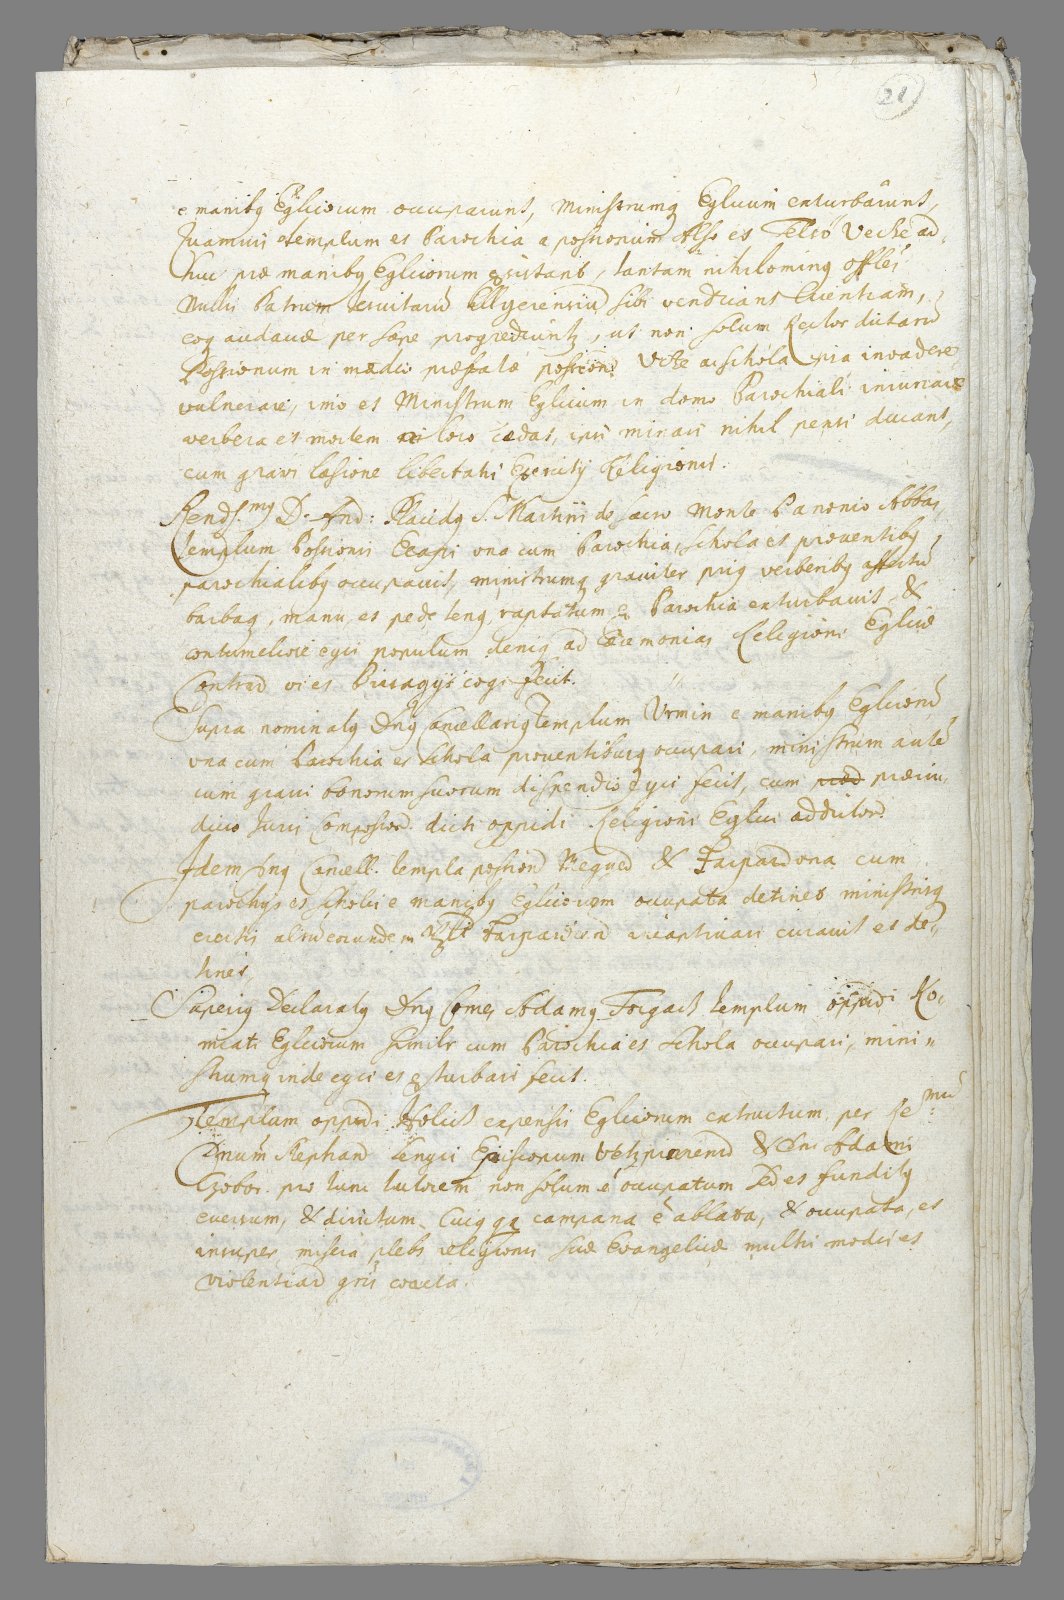 21
e manibq Eglicorum occuparunt, Ministrumq Eglicum exturbârunt,
Quamvis templum et Parochia a possionum Also et Felsö Veche ad-
huc præ manibq Eglicorum existant, tantam nihilominq
Nulli Patrum Jesuitarũ sibi vendicant licentiam,
eoq audaciæ per sæpe progrediuntr, ut non solum Rector dictarũ
Possionum in medio præfatæ possionis Vete a schola via invadere
vulnerare, imo et Ministrum Eglicum in domo Parochiali iniuriare
verbera et mortem ni loco cedat, ipsi minari nihil pensi ducant,
cum gravi læsione libertatis Exercitij Religionis.
Rendsmq D. And: Placidq S. Martini de sacro Monte Panonio Abbas,
templum Possionis una cum Parochia, schola et proventibq
parochialibq occupavit, ministrumq graviter priq verberibq affectũ
barba, manu, et pede tenq raptatum e Parochia exturbavit &
contumeliose egit populum deniq ad Cæremonias Religioni Eglicæ
Contrarias vi et cogi fecit.
Supra nominatq Dnq Cancellariq templum Vrmin e manibq Eglicorũ
una cum Parochia et Schola proventibusq occupari, ministrum autẽ
cum gravi bonorum suorum dispendio eyci fecit, cum præiu-
dicio Juris Compossor. dicti oppidi Religioni Eglicæ addictor.
Idem Dnq Cancell. templa possionũ & una cum
parochijs et scholis e manibq Eglicorum occupata detinet ministrisq
eiectis incaptivari curavit et de-
tinet.
Superiq Declaratq Dnq Comes Adamq Forgach templum oppidi Ko-
miati Eglicorum similr cum Parochia et Schola occupari, mini-
strumq inde eyci et exturbari fecit.
Templum oppidi Holich expensis Eglicorum extructum per Re mũ
Dnum Stephanũ Episcopum & Dni Adami
Czobor pro tunc tutorem non solum é occupatum Sed et funditq
eversum, & dirutum. Cuiq qq campana ê ablata, & occupata, et
insuper misera plebs religionis suæ Evangelicæ multis modis et
violentiarũ gris coacta.